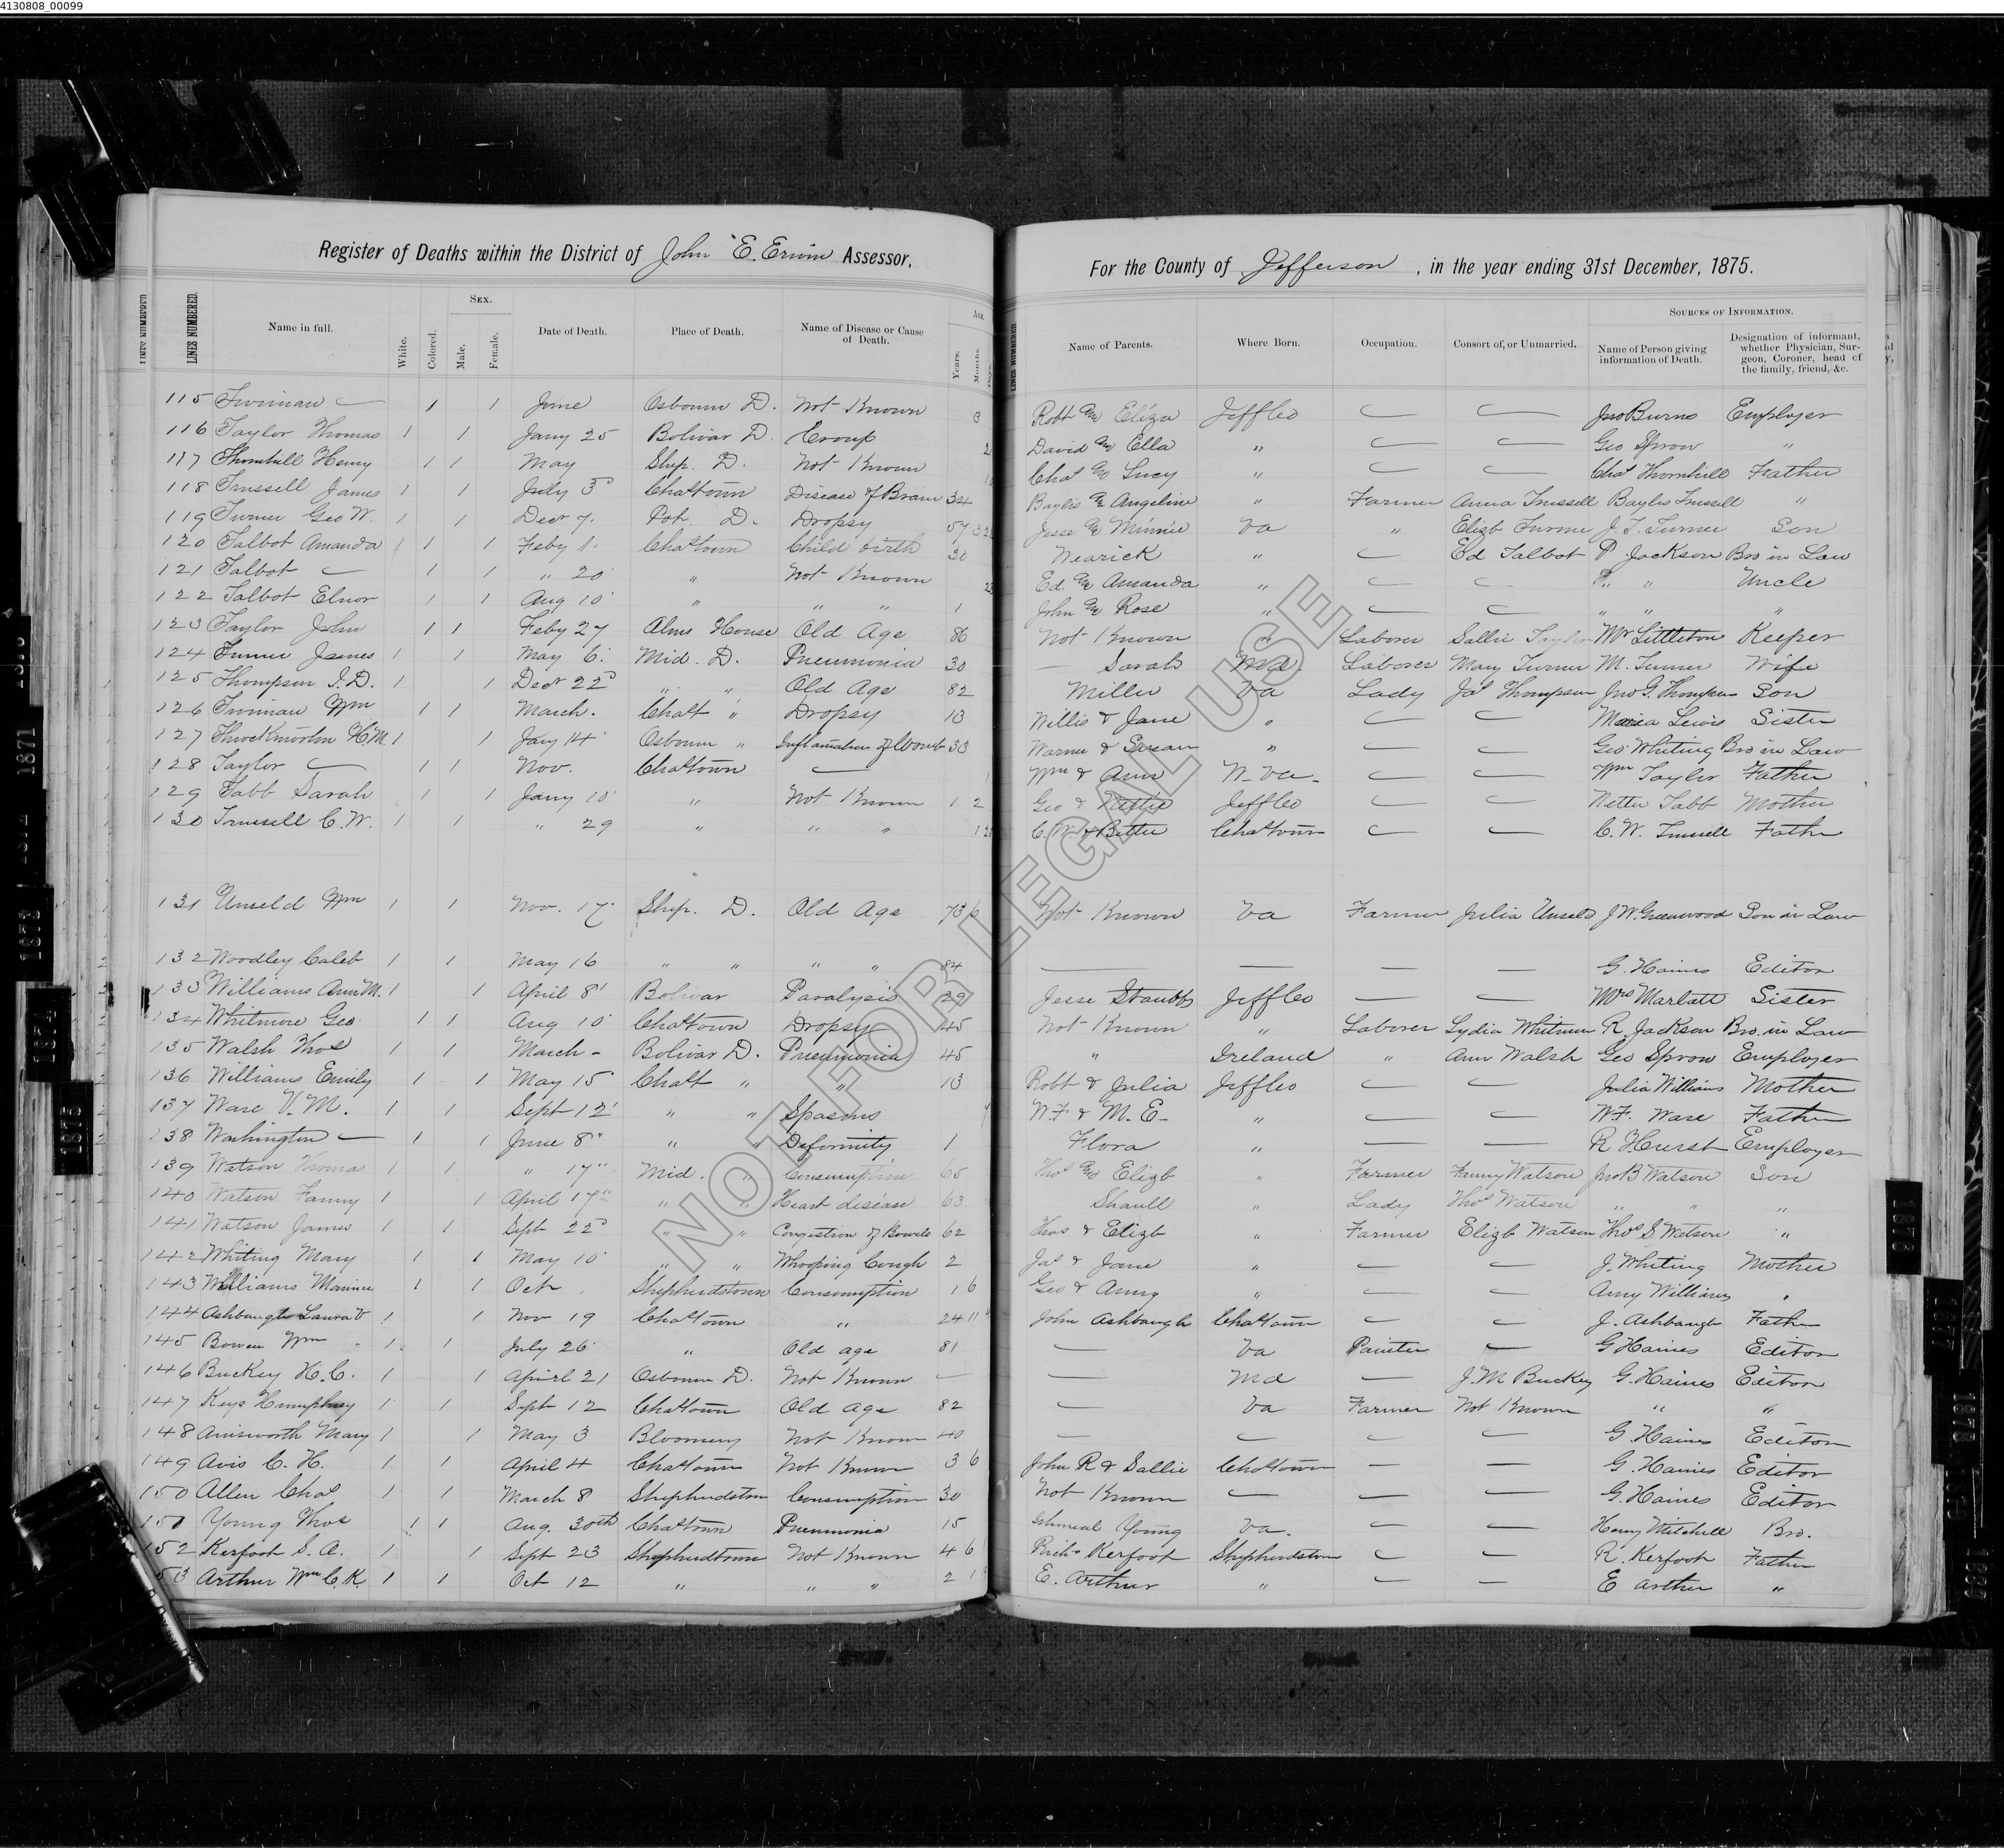 4130808_00099
Register of Deaths within the District of John E. Erwin Assessor,
For the County of Jefferson, in the year ending 31st December, 1875.
LINES NUMBERED. Name in full. White. Colored. SEX. Male. Female. Date of Death. Place of Death. Name of Disease or Cause of Death. AGE. Years. Months. Days.
LINES NUMBERED. Name of Parents. Where Born. Occupation. Consort of, or Unmarried. SOURCES OF INFORMATION. Name of Person giving information of Death. Designation of informant, whether Physician, Surgeon, Coroner, head of the family, friend, &c.
115 1 1 June Osbourn D. Not Known 3 Robt & Eliza Jeffco — — Jno Burns Employer
116 Taylor Thomas 1 1 Jany 25 Bolivar D. Croup David & Ella " — — Geo Sprow "
117 Thornhill Henry 1 1 May Shep. D. Not Known Chas & Lucy " — — Chas Thornhill Father
118 Trussell James 1 1 July 3 Chastown Disease of Brain 34 Baylis & Angeline " Farmer Anna Trussell Baylis Trussell "
119 Turner Geo W. 1 1 Decr 7 Pot. D. Dropsy 57 Jesse & Minnie Va " Elizb Turner J. T. Turner Son
120 Talbot Amanda 1 1 Feby 1 Chastown Child birth 30 Nearick " — Ed Talbot P Jackson Bro in Law
121 Talbot — 1 1 " 20 " Not Known Ed. & Amanda " — — P. " Uncle
122 Talbot Elnor 1 1 Aug 10 " " " 1 John & Rose " — — " " "
123 Taylor John 1 1 Feby 27 Alms House Old Age 86 Not Known " Laborer Sallie Taylor Mr Littleton Keeper
124 Turner James 1 1 May 6 Mid. D. Pneumonia 30 — Sarah Md. Laborer Mary Turner M. Turner Wife
125 Thompson I. D. 1 1 Decr 22 " " Old Age 82 Miller Va Lady Jas Thompson Jno G. Thompson Son
126 Wm 1 1 March. Chast " Dropsy 13 Willis & Jane " — — Lewis Sister
127 Throckmorton H M. 1 1 Jany 14 Osbourn " Inflamation of Womb 33 Warner & Susan " — — Geo Whiting Bro in Law
128 Taylor — 1 1 Nov. Chastown — Wm & Ann W. Va. — — Wm Taylor Father
129 Tabb Sarah 1 1 Jany 10 " Not Known 1 2 Geo & Nettie Jeffco — — Nettie Tabb Mother
130 Trussell C. W. 1 1 " 29 " " " C. W. & Bettie Chastown — — C. W. Trussell Father
131 Unseld Wm 1 1 Nov. 17 Shep. D. Old Age 73 6 Not Known Va Farmer Julia Unseld J. W. Greenwood Son in Law
132 Woodley Caleb 1 1 May 16 " " " " 84 — — — — G. Haines Editor
133 Williams Ann M. 1 1 April 8 Bolivar Paralysis 29 Jesse Staubbs Jeffco — — Mrs Marlatt Sister
134 Whitmore Geo 1 1 Aug 10 Chastown Dropsy 45 Not Known " Laborer Lydia Whitmore R. Jackson Bro. in Law
135 Walsh Thos 1 1 March - Bolivar D. Pneumonia 45 " Ireland " Ann Walsh Geo Sprow Employer
136 Williams Emily 1 1 May 15 Chast " " 13 Robt & Julia Jeffco — — Julia Williams Mother
137 Ware V. M. 1 1 Sept 12 " " Spasms W F & M. E. " — — W F. Ware Father
138 Washington — 1 1 June 8 " " Deformity 1 Flora " — — R. Hurst Employer
139 Watson Thomas 1 1 " 17 Mid. " Consumption 65 Thos & Elizb " Farmer Fanny Watson Jno B Watson Son
140 Watson Fanny 1 1 April 17 " " Heart disease 63 Shaull " Lady Thos Watson " " "
141 Watson James 1 1 Sept 22 " " Congestion of Bowels 62 Thos & Elizb " Farmer Elizb Watson Thos S Watson "
142 Whiting Mary 1 1 May 10 " " Whooping Cough 2 Jas & Jane " — — J. Whiting Mother
143 Williams 1 1 Oct Shepherdstown Consumption 16 Geo & Amy " — — Amy Williams "
144 Ashbaugh Laura V 1 1 Nov 19 Chastown " 24 11 John Ashbaugh Chastown — — J. Ashbaugh Father
145 Bowen Wm 1 1 July 26 " Old age 81 — Va Painter — G Haines Editor
146 Buckey H. C. 1 1 Apirl 21 Osbourn D. Not Known — — Md — J. M Buckey G. Haines Editor
147 Keys Humphrey 1 1 Sept 12 Chastown Old Age 82 — Va Farmer Not Known " "
148 Ainsworth Mary 1 1 May 3 Bloomery Not Known 40 — — — — G. Haines Editor
149 Avis C. H. 1 1 April 4 Chastown Not Known 3 6 John R & Sallie Chastown — — G. Haines Editor
150 Allen Chas 1 1 March 8 Shepherdston Consumption 30 Not Known — — — G. Haines Editor
151 Young Thos 1 1 Aug. 30th Chastown Pneumonia 15 Young Va. — — Henry Mitchell Bro.
152 Kerfoot S. A. 1 1 Sept 23 Shepherdtown Not Known 4 6 Richd Kerfoot Shepherdston — — R. Kerfoot Father
53 Arthur Wm C. K. 1 1 Oct 12 " " " 2 1 E. Arthur " — — E Arthur "
NOT FOR LEGAL USE
1871
1873
1874
1875